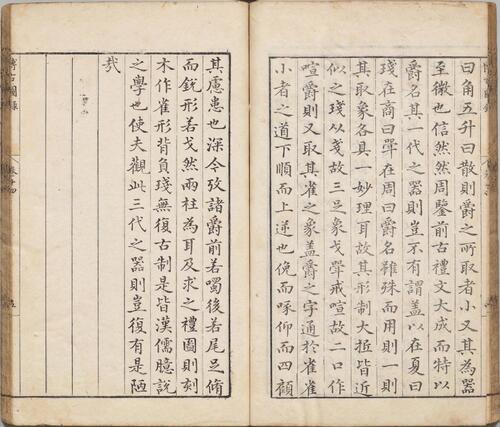 曰角五升曰散則爵之所取者小又其為器
至微也信然然周鑒前古禮文大成而特以
爵名其一代之器則豈不有謂蓋以在夏曰
琖在商曰斝在周曰爵名雖殊而用則一則
其取象各具一妙理耳故其形制大抵皆近
似之琖从戔故三足象戈斝戒喧故二口作
喧爵則又取其雀之象蓋爵之字通於雀雀
小者之道下順而上逆也俛而啄仰而四顧
其慮患也深今攷諸爵前若噣後若尾足脩
而銳形若戈然兩柱為耳及求之禮圖則刻
木作雀形背負琖無復古制是皆漢儒臆說
之學也使夫觀此三代之器則豈復有是陋
哉